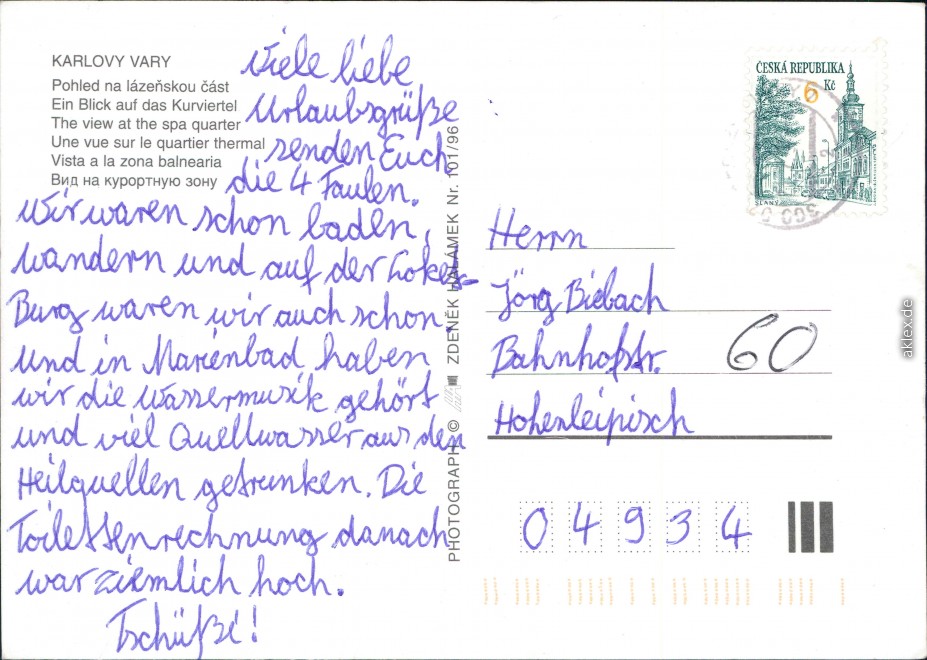 KARLOVY VARY
Pohled na lázeňskou část
Ein Blick auf das Kurviertel
The view at the spa quarter
Une vue sur le quartier thermal
Vista a la zona balnearia
Вид на курортную зону
Viele liebe
Urlaubsgrüße
senden Euch
die 4 Faulen.
Wir waren schon baden,
wandern und auf der Loket-
Burg waren wir auch schon.
und in Marienbad haben
wir die Wassermusik gehört
und viel Quellwasser aus den
Heilquellen getrunken. Die
Toilettenrechnung danach
war ziemlich hoch.
Tschüße!
PHOTOGRAPH © ZDENĚK HALÁMEK Nr. 101/96
ČESKÁ REPUBLIKA
6 Kč
SLANÝ
Herrn
Jörg Biebach
Bahnhofstr. 60
Hohenleipisch
04934
aklex.de